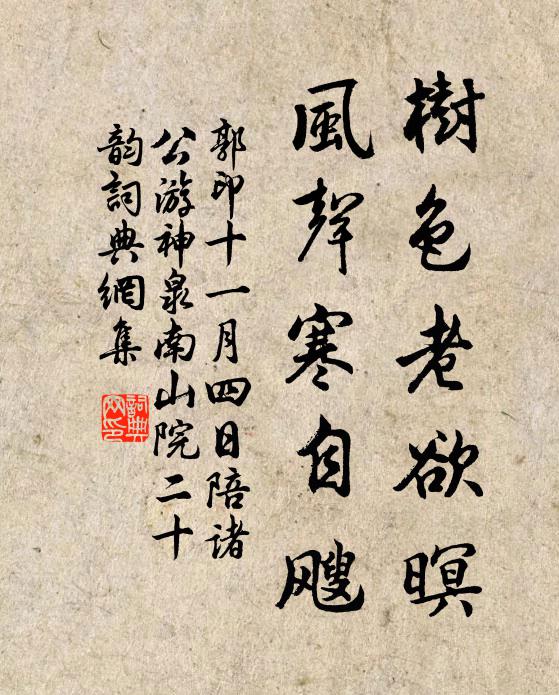 樹色老欲暝
風聲寒自颼
郭印十一月四日陪諸
公游神泉南山院二十
韵詞典網集
詞典
网印